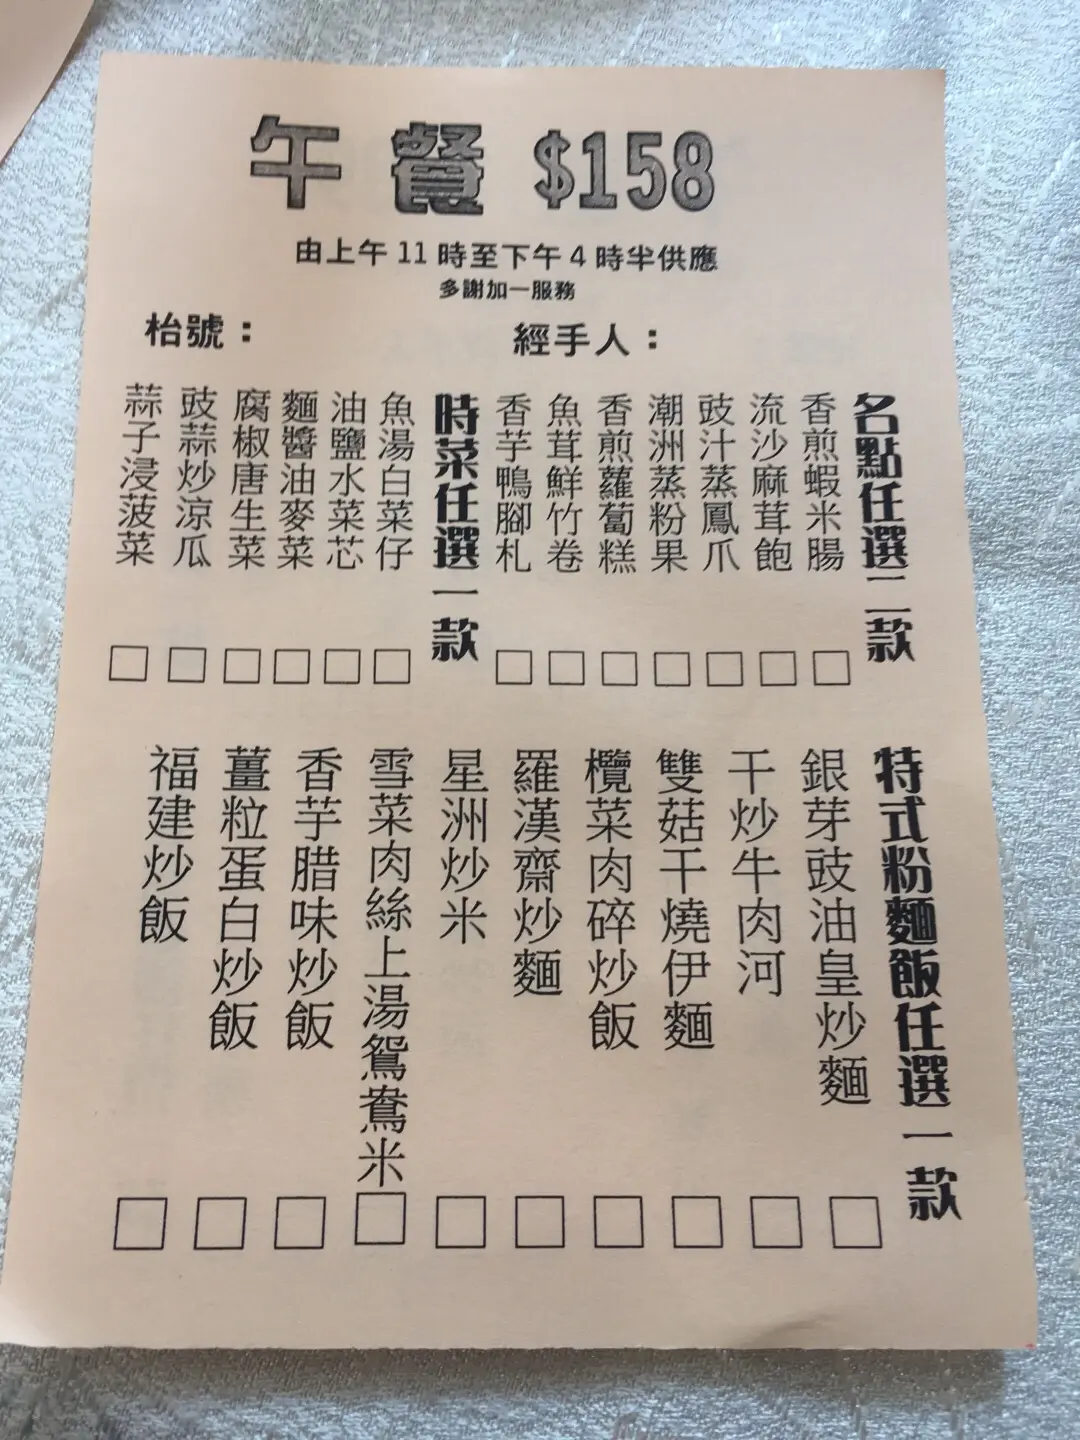 午餐 $158
由上午 11 時至下午 4 時半供應
多謝加一服務
枱號：
經手人：
名點任選二款
香煎蝦米腸
流沙麻茸飽
豉汁蒸鳳爪
潮洲蒸粉果
香煎蘿蔔糕
魚茸鮮竹卷
香芋鴨腳札
時菜任選一款
魚湯白菜仔
油鹽水菜芯
麵醬油麥菜
腐椒唐生菜
豉蒜炒涼瓜
蒜子浸菠菜
特式粉麵飯任選一款
銀芽豉油皇炒麵
干炒牛肉河
雙菇干燒伊麵
欖菜肉碎炒飯
羅漢齋炒麵
星洲炒米
雪菜肉絲上湯鴛鴦米
香芋腊味炒飯
薑粒蛋白炒飯
福建炒飯